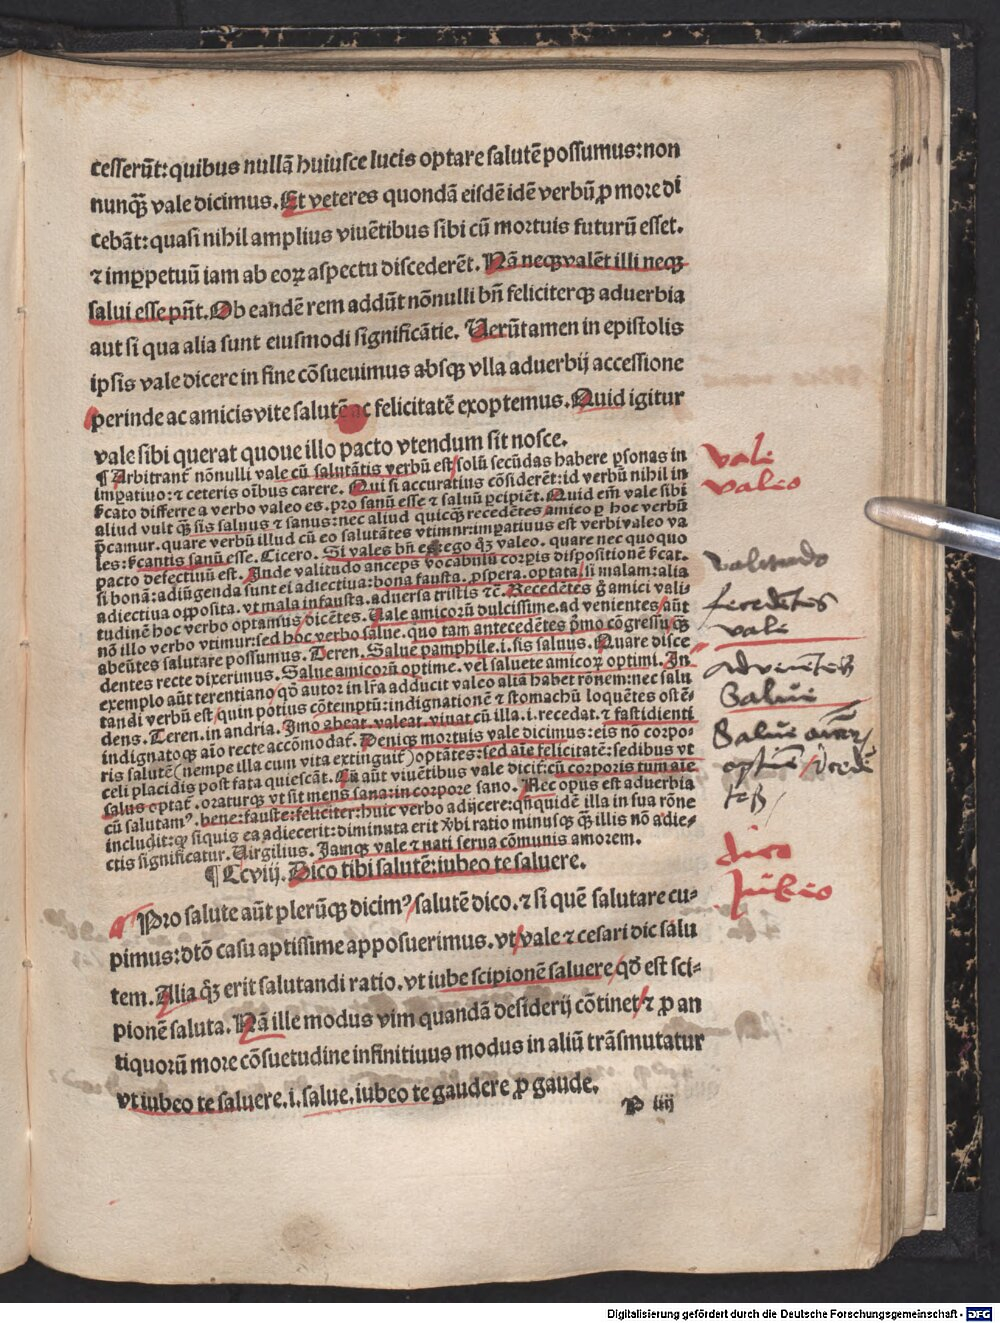 cesserūt: quibus nullā huiusce lucis optare salutē possumus: non
nunq̄ vale dicimus. Et veteres quondā eisdē idē verbū ꝓ more di
cebāt: quasi nihil amplius viuētibus sibi cū mortuis futurū esset.
⁊ imꝑpetuū iam ab eoꝝ aspectu discederēt. Nā neqꝫ valēt illi neqꝫ
salui esse pn̄t. Ob eandē rem addūt nōnulli bn̄ feliciterqꝫ aduerbia
aut si qua alia sunt eiusmodi significātie. Uerūtamen in epistolis
ipsis vale dicere in fine cōsueuimus absqꝫ vlla aduerbij accessione
perinde ac amicis vite salutē ac felicitatē exoptemus. Quid igitur
vale sibi querat quoue illo pacto vtendum sit nosce.
¶ Arbitrant̄ nōnulli vale cū salutātis verbū est/ solū secūdas habere ꝑsonas in
imꝑatiuo: ⁊ ceteris oībus carere. Qui si accuratius cōsiderēt: id verbū nihil in
ſ̄cato differre a verbo valeo es. pro sanū esse ⁊ saluū ꝑcipiēt. Quid em̄ vale sibi
aliud vult qꝫ sis saluus ⁊ sanus: nec aliud quicqꝫ recedētes amico ꝑ hoc verbū
p̄camur. quare verbū illud cū eo salutātes vtimur: imꝑatiuus est verbi valeo va
les: ſ̄cantis sanū esse. Cicero. Si vales bn̄ est: ego qꝫ valeo. quare nec quoquo
pacto defectiuū est. Inde valitudo anceps vocabulū corꝑis dispositionē ſ̄cat.
si bonā: adiūgenda sunt ei adiectiua: bona fausta. ꝓspera. optata. si malam: alia
adiectiua opposita. vt mala infausta. aduersa tristis ⁊c̄. Recedētes ḡ amici vali-
tudinē hoc verbo optamus/ dicētes. Uale amicorū dulcissime. ad venientes/ aūt
nō illo verbo vtimur: sed hoc verbo salue. quo tam antecedētes p̄mo cōgressu/ qꝫ
abeūtes salutare possumus. Teren. Salue pamphile .i. sis saluus. Quare disce
dentes recte dixerimus. Salue amicorū optime. vel saluete amicoꝝ optimi. In
exemplo aūt terentiano/ qd̄ autor in lr̄a adducit valeo aliā habet rōnem: nec salu
tandi verbū est/ quin potius cōtemptū: indignationē ⁊ stomachū loquētes ostē-
dens. Teren. in andria. Imo abeat. valeat. viuat cū illa .i. recedat. ⁊ fastidienti
indignatoqꝫ aīo recte accōmodat̄. Deniqꝫ mortuis vale dicimus: eis nō corpo-
ris salutē (nempe illa cum vita extinguit̄) optātes: sed aīe felicitatē: sedibus vt
celi placidis post fata quiescāt. Cū aūt viuētibus vale dicit̄: cū corporis tum aīe
salus optat̄. oraturqꝫ vt sit mens sana: in corpore sano. Nec opus est aduerbia
cū salutamꝰ. bene: fauste: feliciter: huic verbo adijcere: qn̄quidē illa in sua rōne
includit: qꝫ siquis ea adiecerit: diminuta erit v̄bi ratio minusqꝫ qꝫ illis nō adie-
ctis significatur. Uirgilius. Iamqꝫ vale ⁊ nati serua cōmunis amorem.
¶ Ccviij. Dico tibi salutē: iubeo te saluere.
Pro salute aūt plerūqꝫ dicimꝰ/ salutē dico. ⁊ si quē salutare cu-
pimus: dtō casu aptissime apposuerimus. vt/ vale ⁊ cesari dic salu
tem. Alia qꝫ erit salutandi ratio. vt iube scipionē saluere/ qd̄ est sci-
pionē saluta. Nā ille modus vim quandā desiderij cōtinet/ ⁊ ꝓ an
tiquorū more cōsuetudine infinitiuus modus in aliū trāsmutatur
vt iubeo te saluere .i. salue. iubeo te gaudere ꝓ gaude.
P iiij
vale
valeo
valitudo
recedētes
vale
advenietes
Salue
Salue amicorū
optime
dico
Jubeo
Digitalisierung gefördert durch die Deutsche Forschungsgemeinschaft - DFG